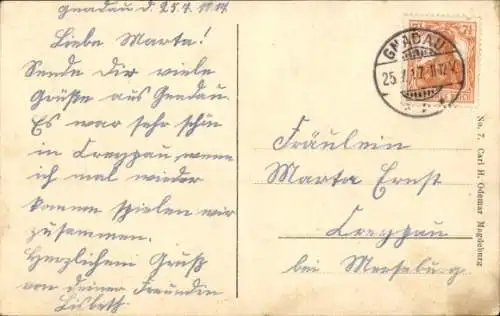 Gnadau d. 25.7.1917
Liebe Marta!
Sende dir viele
Grüße aus Gnadau.
Es war sehr schön
in Creypau, wenn
ich mal wieder
komme spielen wir
zusammen.
Herzlichen Gruß
von deiner Freundin
Lisbeth
GNADAU
25.7.17. 11-12 V.
7½
Fräulein
Marta Ernst
Creypau
bei Merseburg
No. 7. Carl H. Odemar Magdeburg